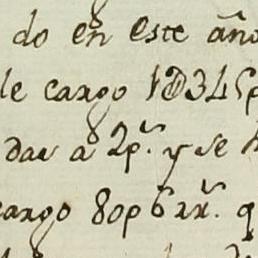 do en este año
de cargo 1D345p
dar a 2p.s y se
cargo 80p 6 rr.s q